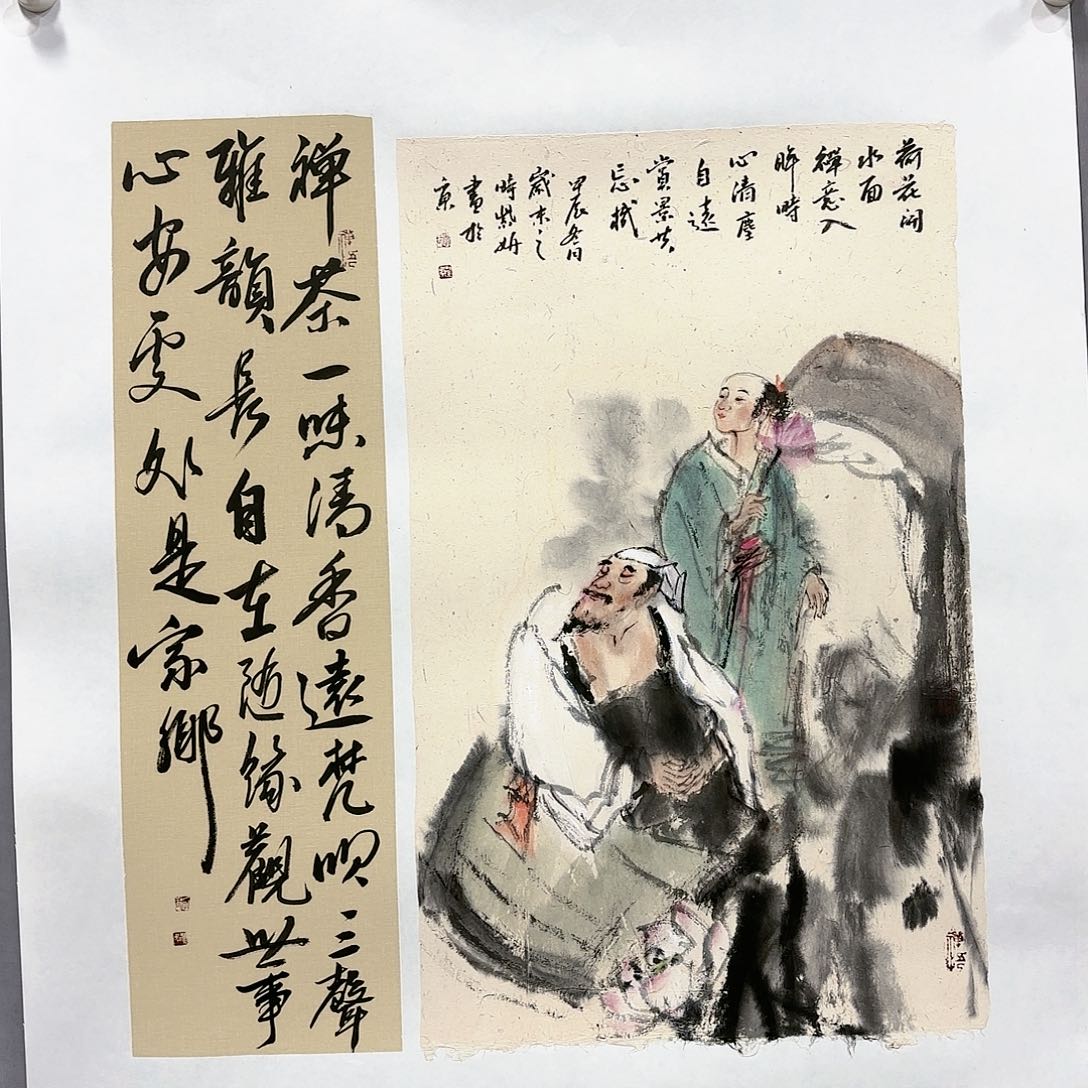 荷花開
水面
禪意入
眸時
心清塵
自遠
賞景共
忘機
甲辰冬日
歲末之
時紫妍
畫於
京
禅茶一味清香遠梵唄三聲
雅韻長自在随緣觀世事
心安處处是家鄉